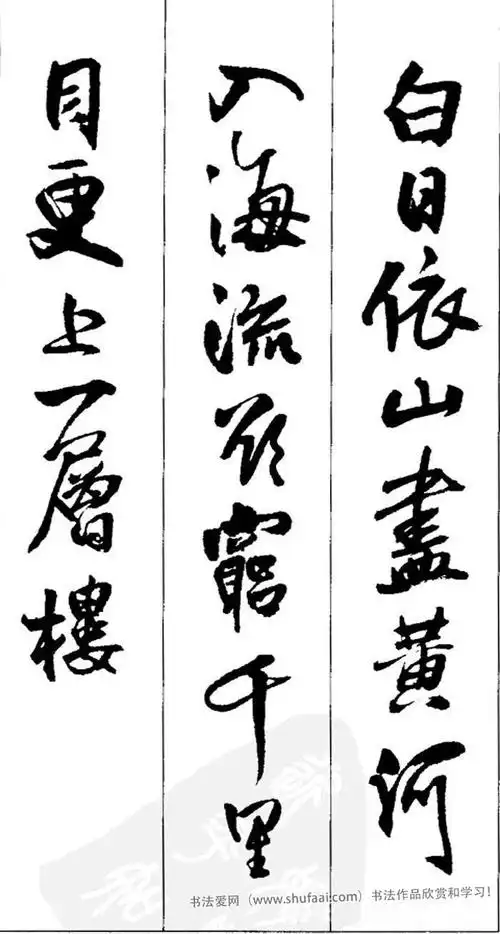 白日依山盡黄河
入海流欲窮千里
目更上一層樓
书法爱网（www.shufaai.com）书法作品欣赏和学习！